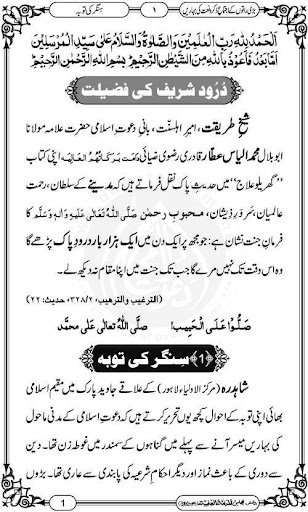 بڑی راتوں کے اجتماعِ ذکر و نعت کی بہاریں ١ سِنگر کی توبہ
اَلْحَمْدُلِلّٰہِ رَبِّ الْعٰلَمِیْنَ وَالصَّلٰوۃُ وَالسَّلَامُ عَلٰی سَیِّدِ الْمُرْسَلِیْنَ
اَمَّابَعْدُ فَاَعُوْذُبِاللّٰہِ مِنَ الشَّیْطٰنِ الرَّجِیْمِ بِسْمِ اللّٰہِ الرَّحْمٰنِ الرَّحِیْمِ
دُرُود شریف کی فضیلت
شیخِ طریقت، امیرِ اہلسنّت، بانیٔ دعوتِ اسلامی حضرت علامہ مولانا
ابوبلال محمد الیاس عطّار قادری رضوی ضیائی دَامَتْ بَرَکَاتُہُمُ الْعَالِیَہ اپنی کتاب
”گھریلو علاج“ میں حدیثِ پاک نقل فرماتے ہیں کہ مدینے کے سلطان، رحمتِ
عالمیان، سَروَرِ ذیشان، محبوبِ رحمٰن صَلَّی اللہُ تَعَالٰی عَلَیْہِ وَاٰلِہٖ وَسَلَّم کا
فرمانِ جنت نشان ہے: جو مجھ پر ایک دن میں ایک ہزار بار درودِ پاک پڑھے گا
وہ اس وقت تک نہیں مرے گا جب تک جنت میں اپنا مقام نہ دیکھ لے۔
(الترغیب والترھیب، ٢/٣٢٨، حدیث: ٢٢)
صَلُّوْا عَلَی الْحَبِیْب! صَلَّی اللہُ تعالٰی علٰی محمَّد
﴿1﴾ سِنگر کی توبہ
شاہدرہ (مرکز الاولیاء لاہور) کے علاقے جاوید پارک میں مقیم اسلامی
بھائی اپنی توبہ کے احوال کچھ یوں تحریر کرتے ہیں کہ دعوتِ اسلامی کے مدنی ماحول
کی بہاریں میسر آنے سے پہلے میں گناہوں کے سمندر میں غوطہ زن تھا۔ دین
سے دوری کے باعث نماز اور دیگر احکامِ شرعیہ کی پاسداری نہ تھی۔ بڑوں
1